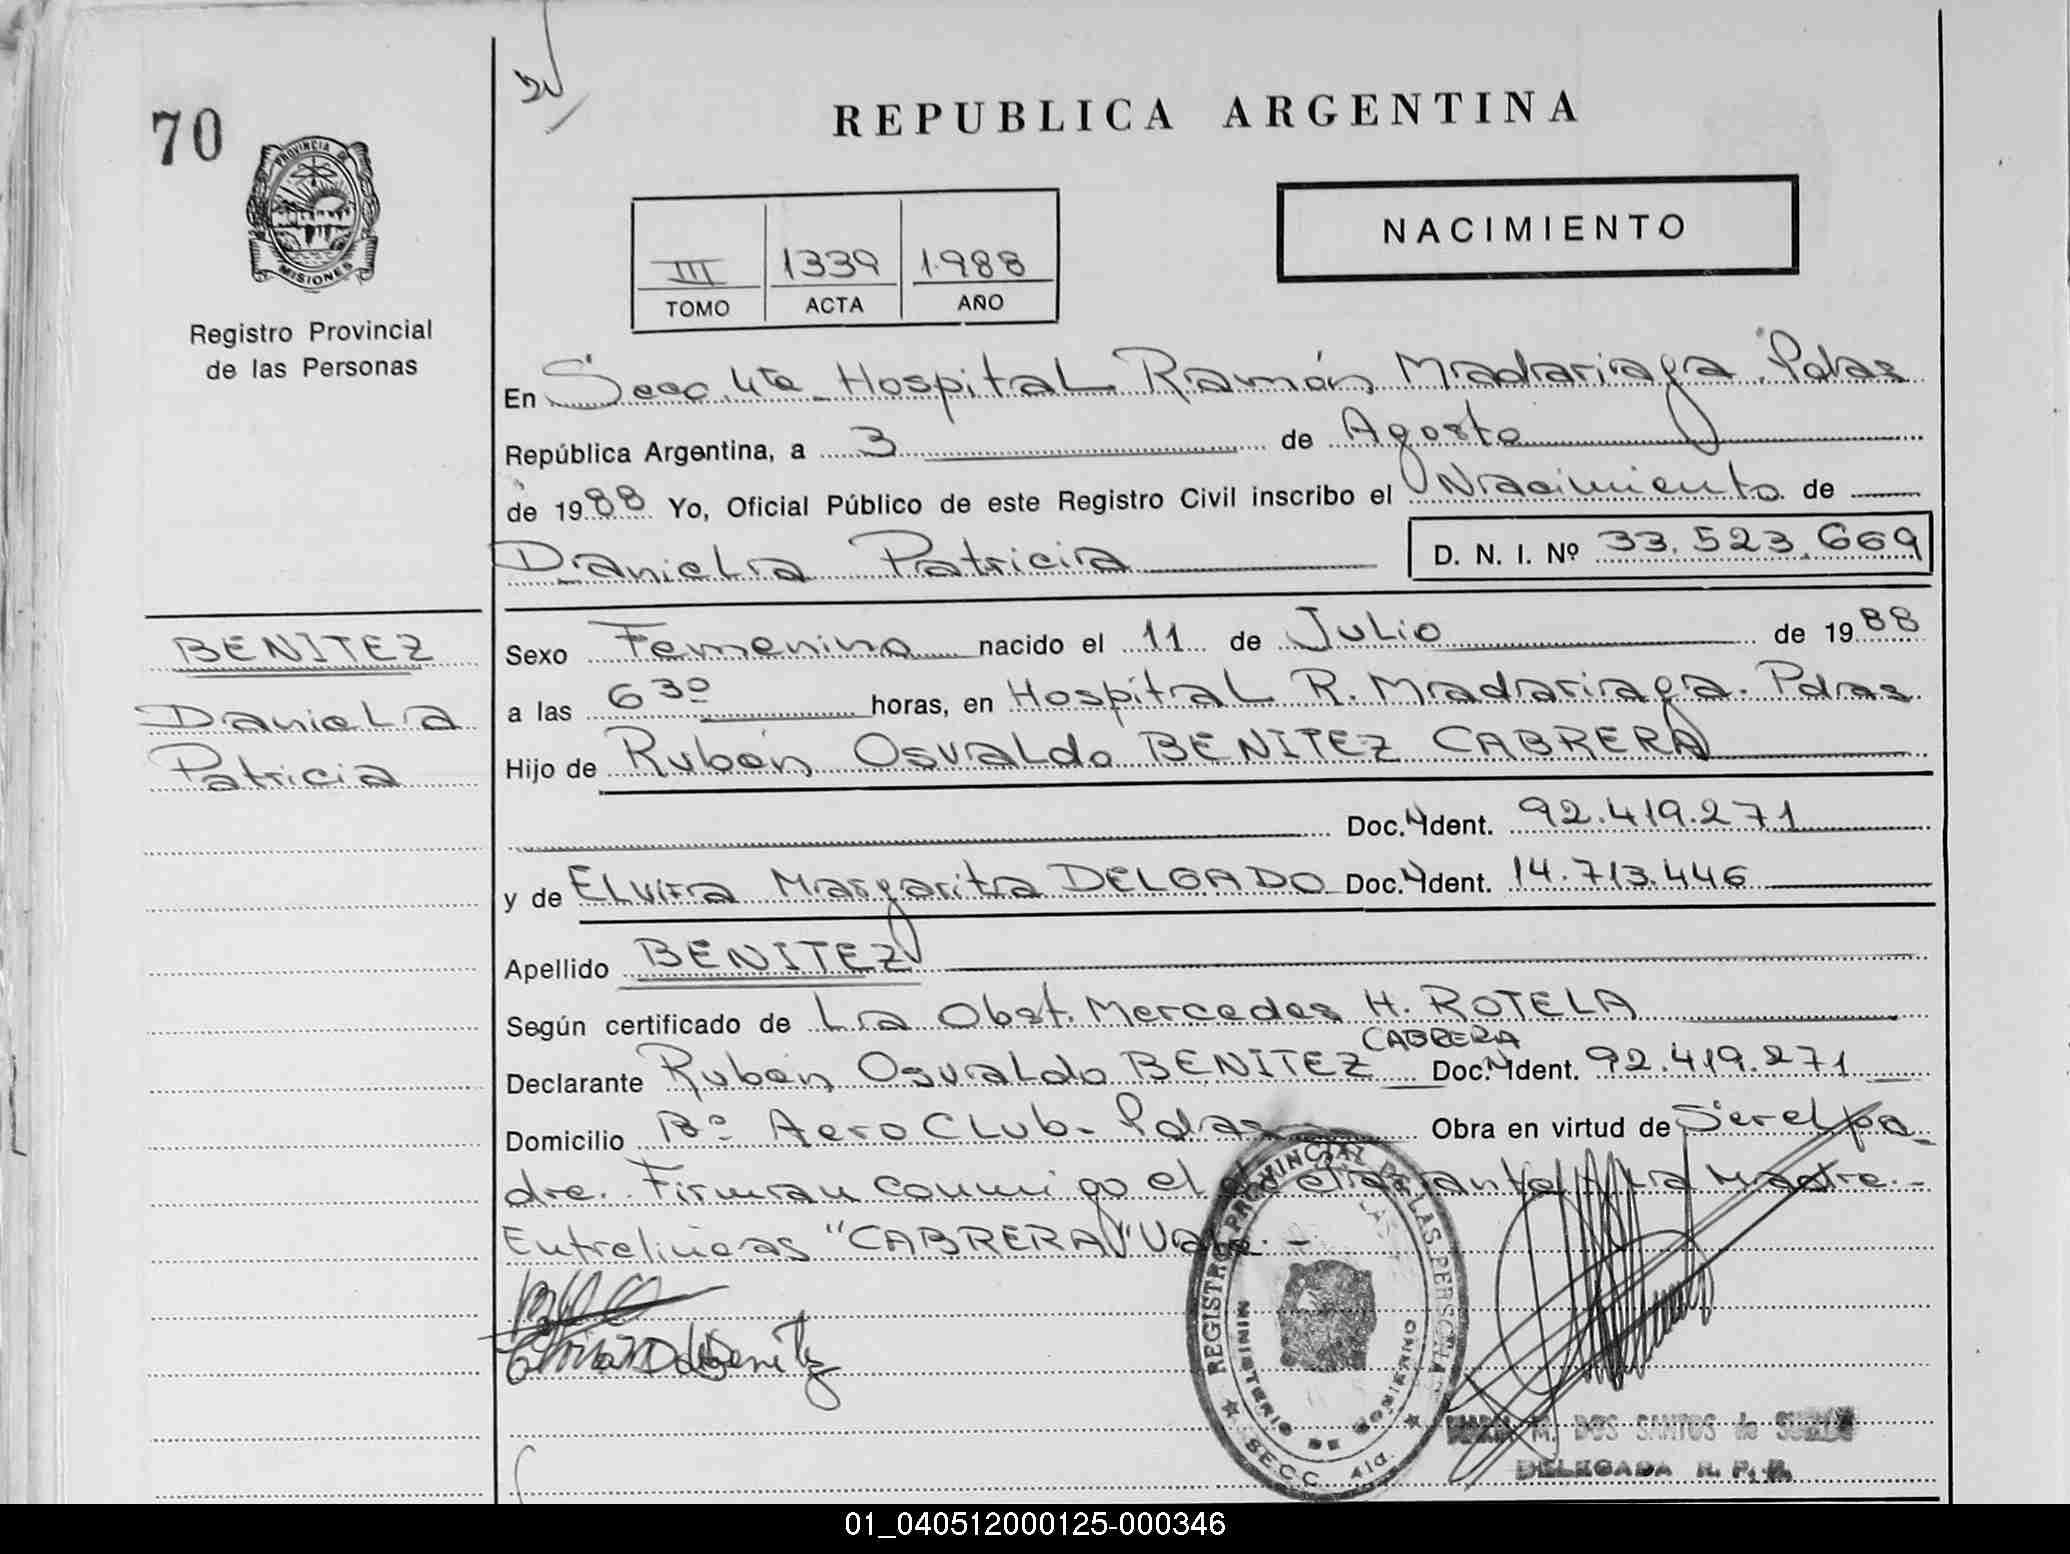 70
REPUBLICA ARGENTINA
PROVINCIA DE
MISIONES
Registro Provincial
de las Personas
NACIMIENTO
III 1339 1.988
TOMO ACTA AÑO
En Secc. 4ta Hospital Ramón Madariaga. Pdas
República Argentina, a 3 de Agosto
de 1988 Yo, Oficial Público de este Registro Civil inscribo el Nacimiento de
Daniela Patricia D. N. I. Nº 33.523.669
BENITEZ
Daniela
Patricia
Sexo Femenino nacido el 11 de Julio de 1988
a las 6 30 horas, en Hospital R. Madariaga. Pdas
Hijo de Rubén Osvaldo BENITEZ CABRERA
Doc. Ident. 92.419.271
y de Elvira Margarita DELGADO Doc. Ident. 14.713.446
Apellido BENITEZ
Según certificado de La Obst. Mercedes H. ROTELA
CABRERA
Declarante Rubén Osvaldo BENITEZ Doc. Ident. 92.419.271
Domicilio Bº Aero Club. Pdas Obra en virtud de Ser el pa_
dre. Firman conmigo el declarante y la Madre.-
Entrelineas "CABRERA" Vale.-
REGISTRO PROVINCIAL DE LAS PERSONAS
MINISTERIO DE GOBIERNO
SECC. 4ta.
M. DOS SANTOS de
DELEGADA R. P. P.
01_040512000125-000346